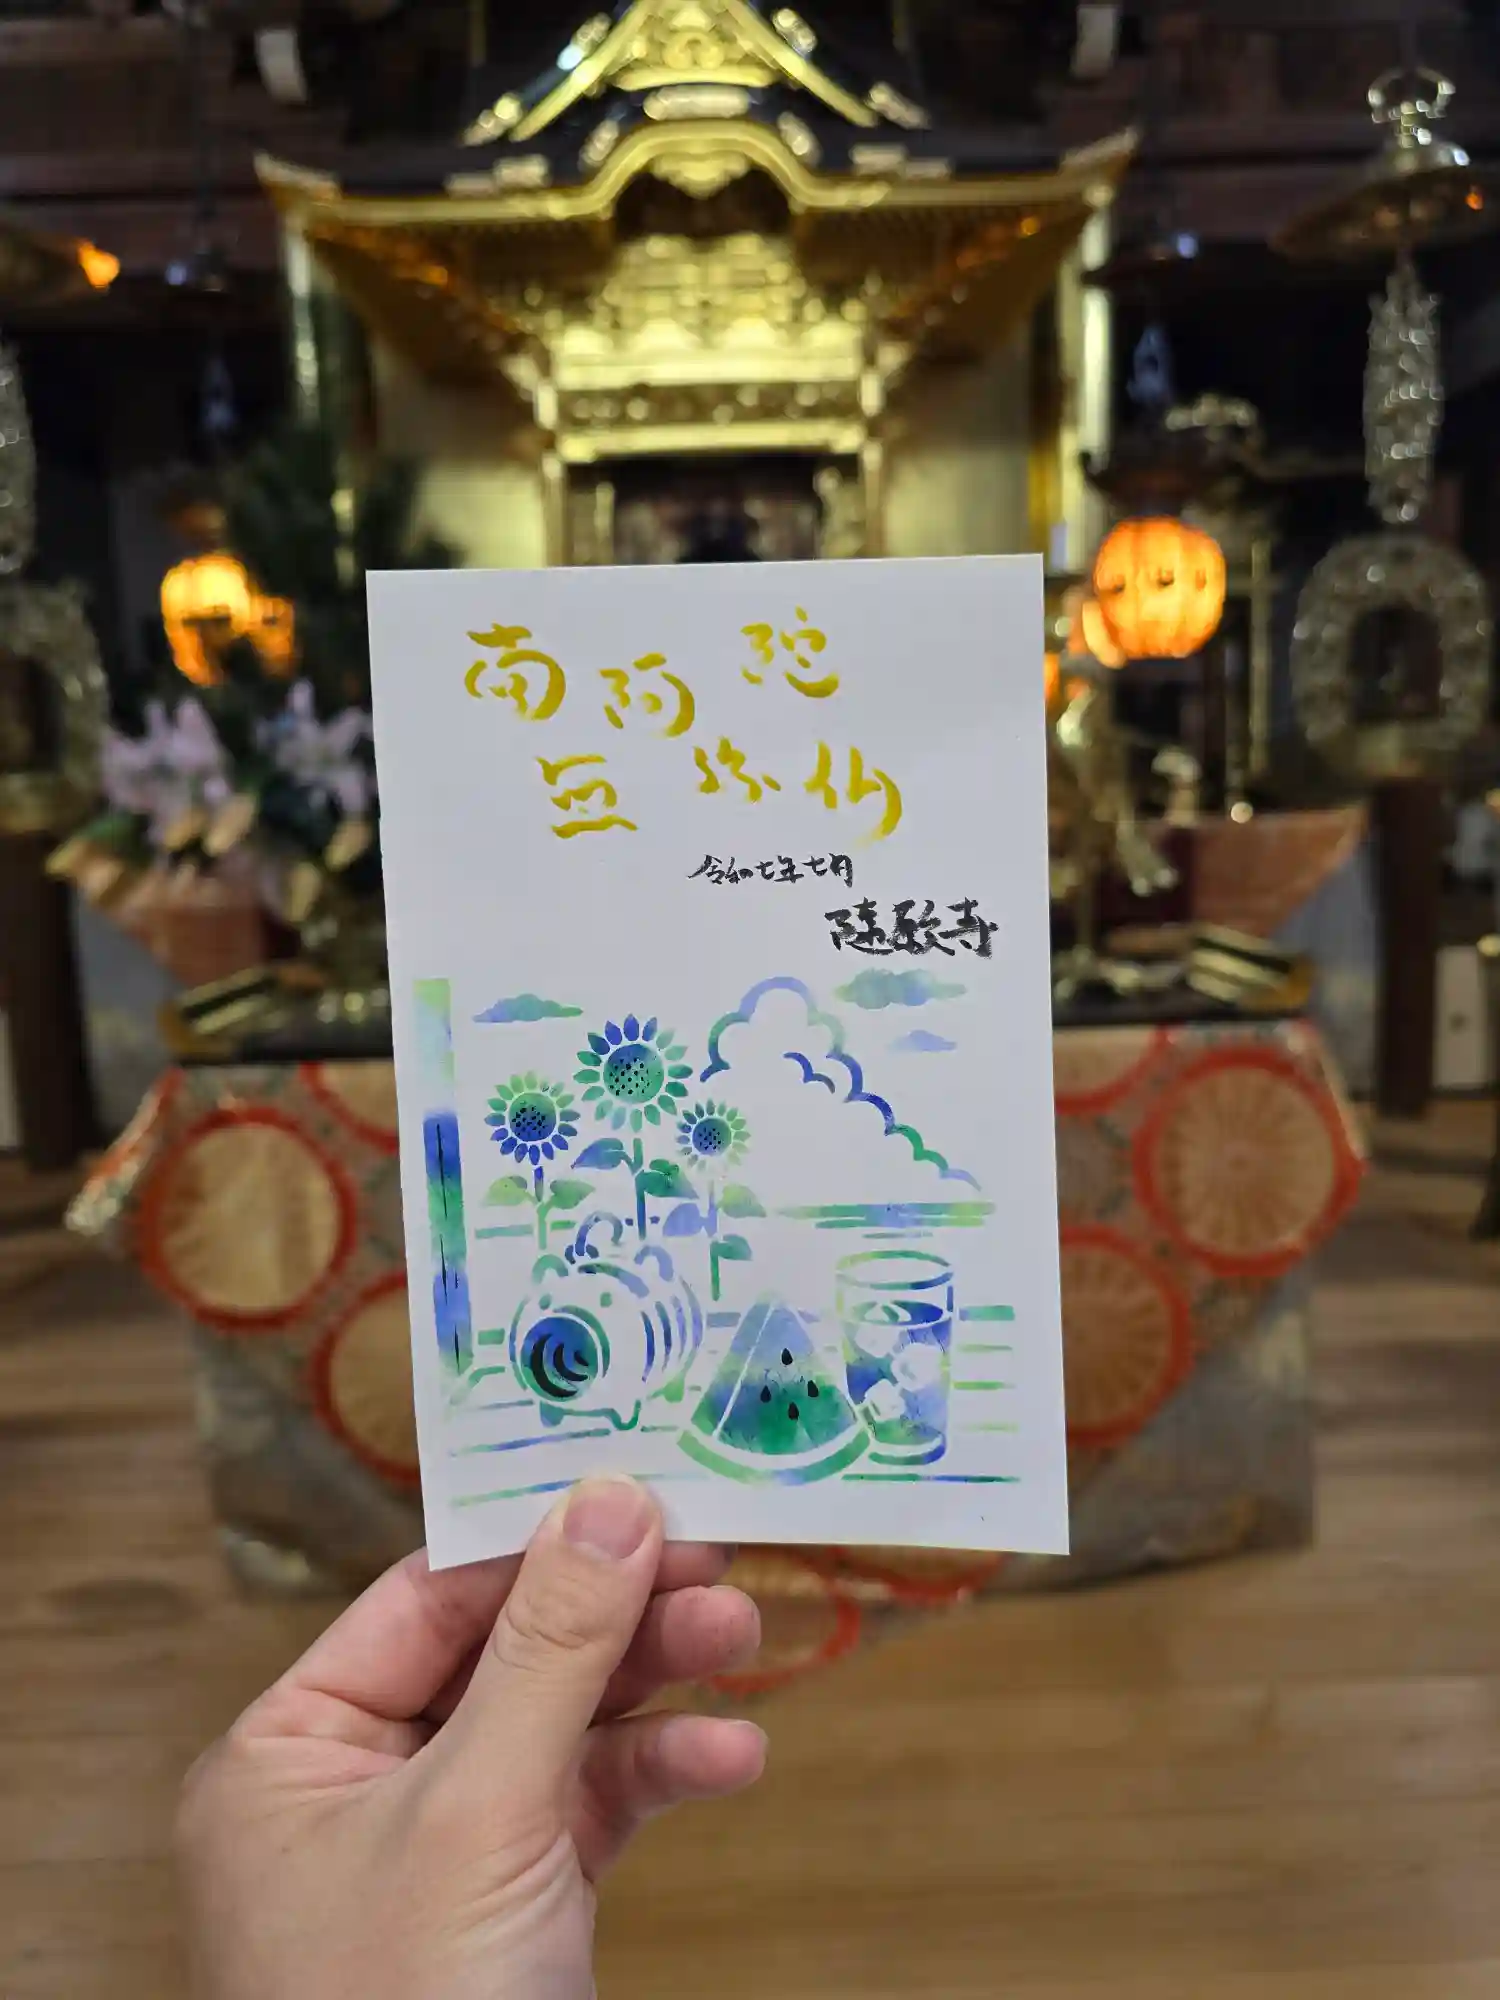 南無
阿弥
陀仏
令和七年七月
随願寺